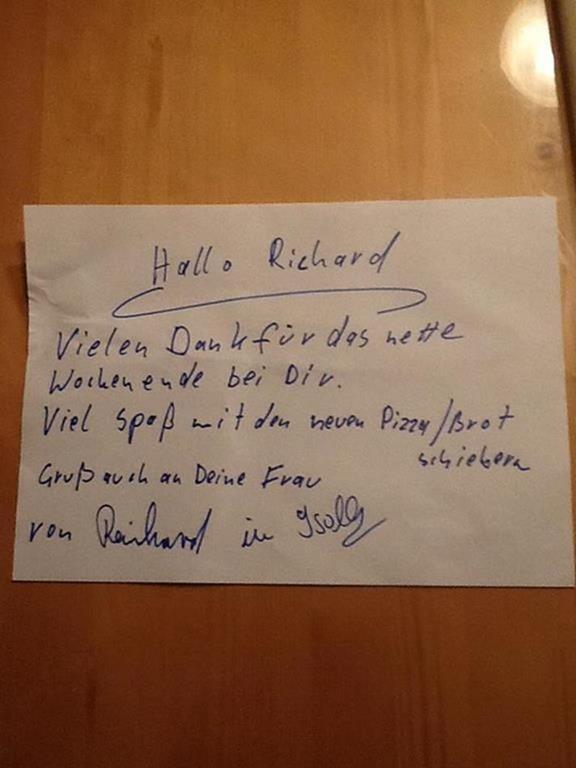 Hallo Richard
Vielen Dank für das nette
Wochenende bei Dir.
Viel Spaß mit den neuen Pizza/Brot
schiebern
Gruß auch an Deine Frau
von Reinhard